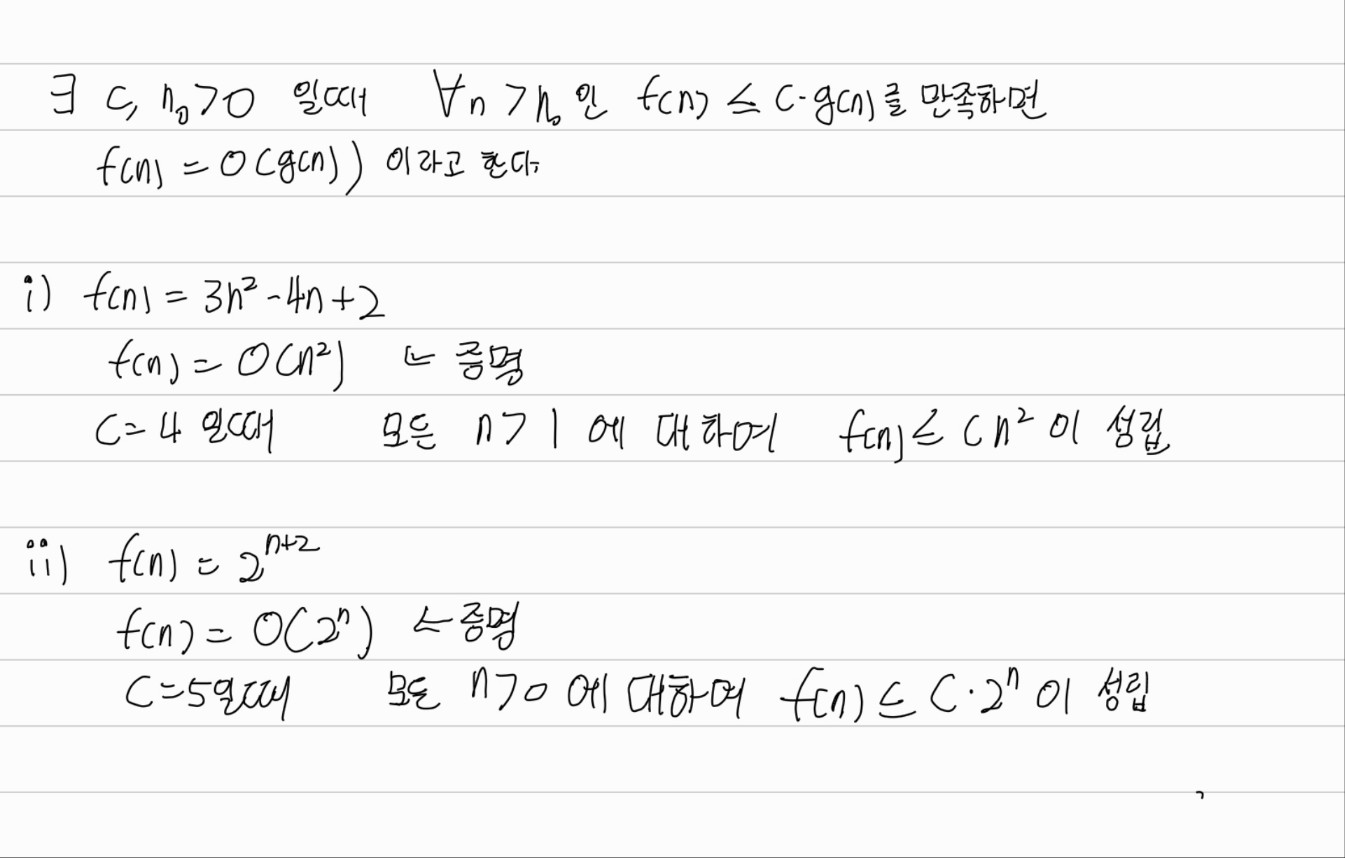 ∃ c, n₀>0 일때 ∀n >n₀ 인 f(n) ≤ c·g(n)를 만족하면
f(n) = O(g(n)) 이라고 한다.
i) f(n) = 3n²-4n+2
f(n) = O(n²) ← 증명
C=4 일때 모든 n>1 에 대하여 f(n)≤ cn² 이 성립
ii) f(n) = 2ⁿ⁺²
f(n) = O(2ⁿ) ← 증명
C=5일때 모든 n>0 에 대하여 f(n) ≤ C·2ⁿ 이 성립